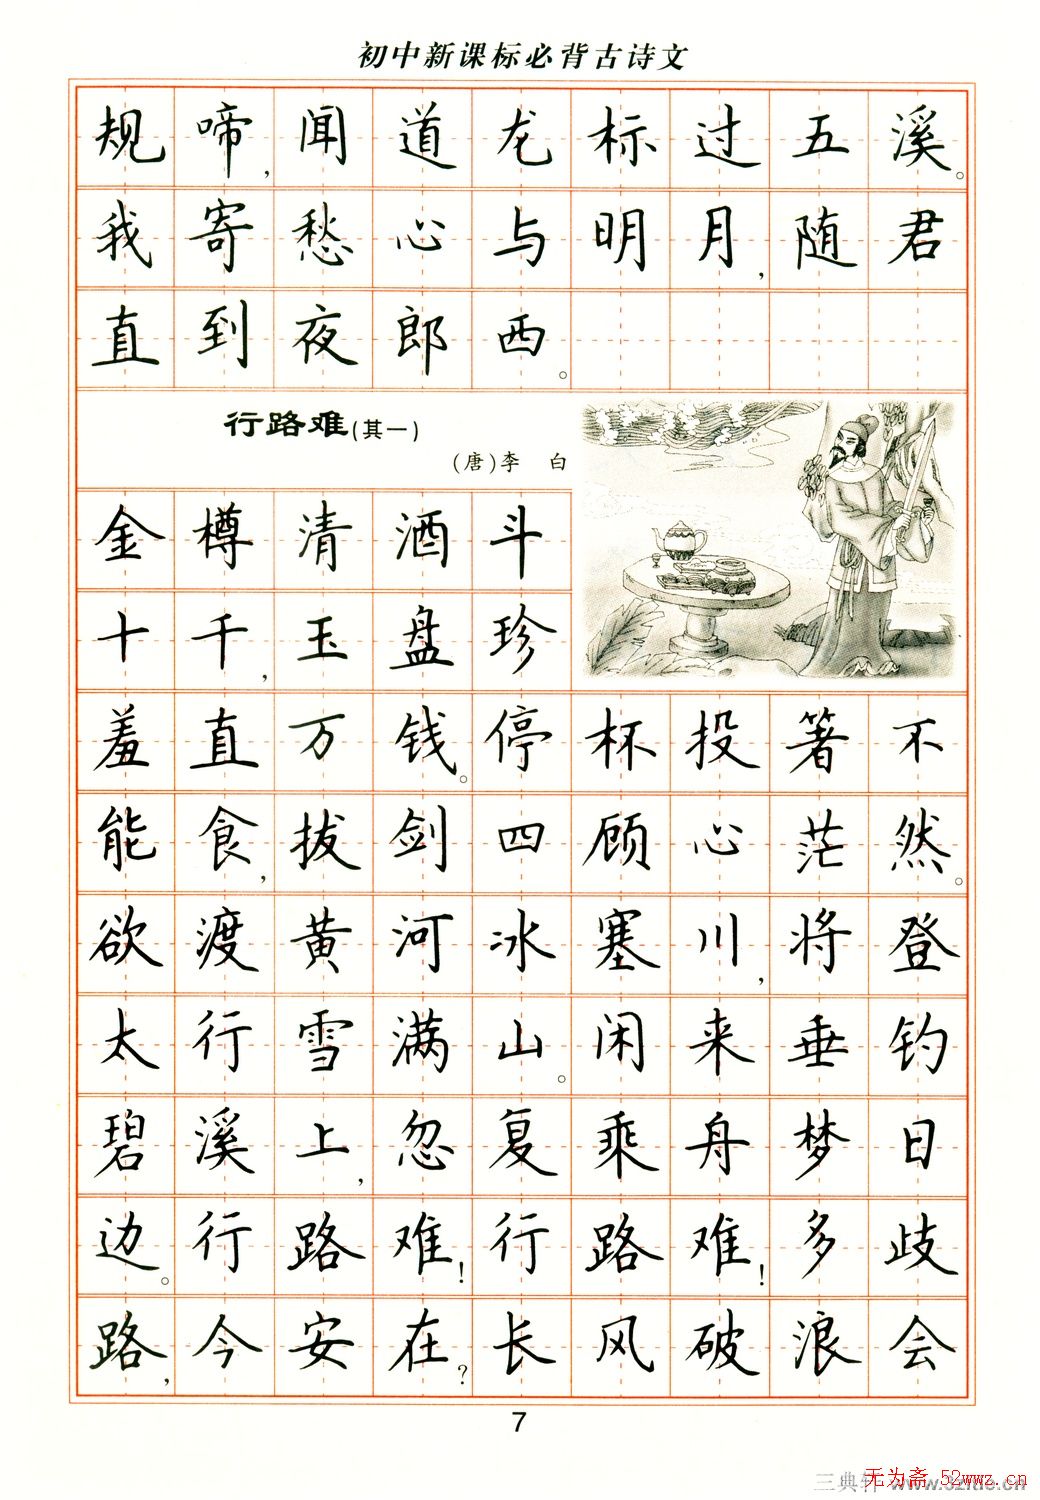 初中新课标必背古诗文
规啼,闻道龙标过五溪。
我寄愁心与明月,随君
直到夜郎西。
行路难(其一)
(唐)李 白
金樽清酒斗
十千,玉盘珍
羞直万钱。停杯投箸不
能食,拔剑四顾心茫然。
欲渡黄河冰塞川,将登
太行雪满山。闲来垂钓
碧溪上,忽复乘舟梦日
边。行路难!行路难!多歧
路,今安在?长风破浪会
7
无为斋 52wwz.cn